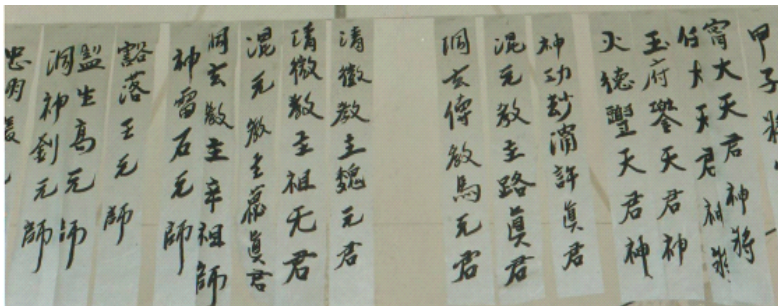 甲子將
甯大天君神將
任大天君神將
玉府天君神
火德天君神
神功妙濟許眞君
混元教主路眞君
洞玄傳教馬元君
清微教主魏元君
清微教主祖元君
混元教主葛眞君
洞玄教主辛祖師
神雷石元師
豁落王元師
監生高元師
洞神劉元師
忠